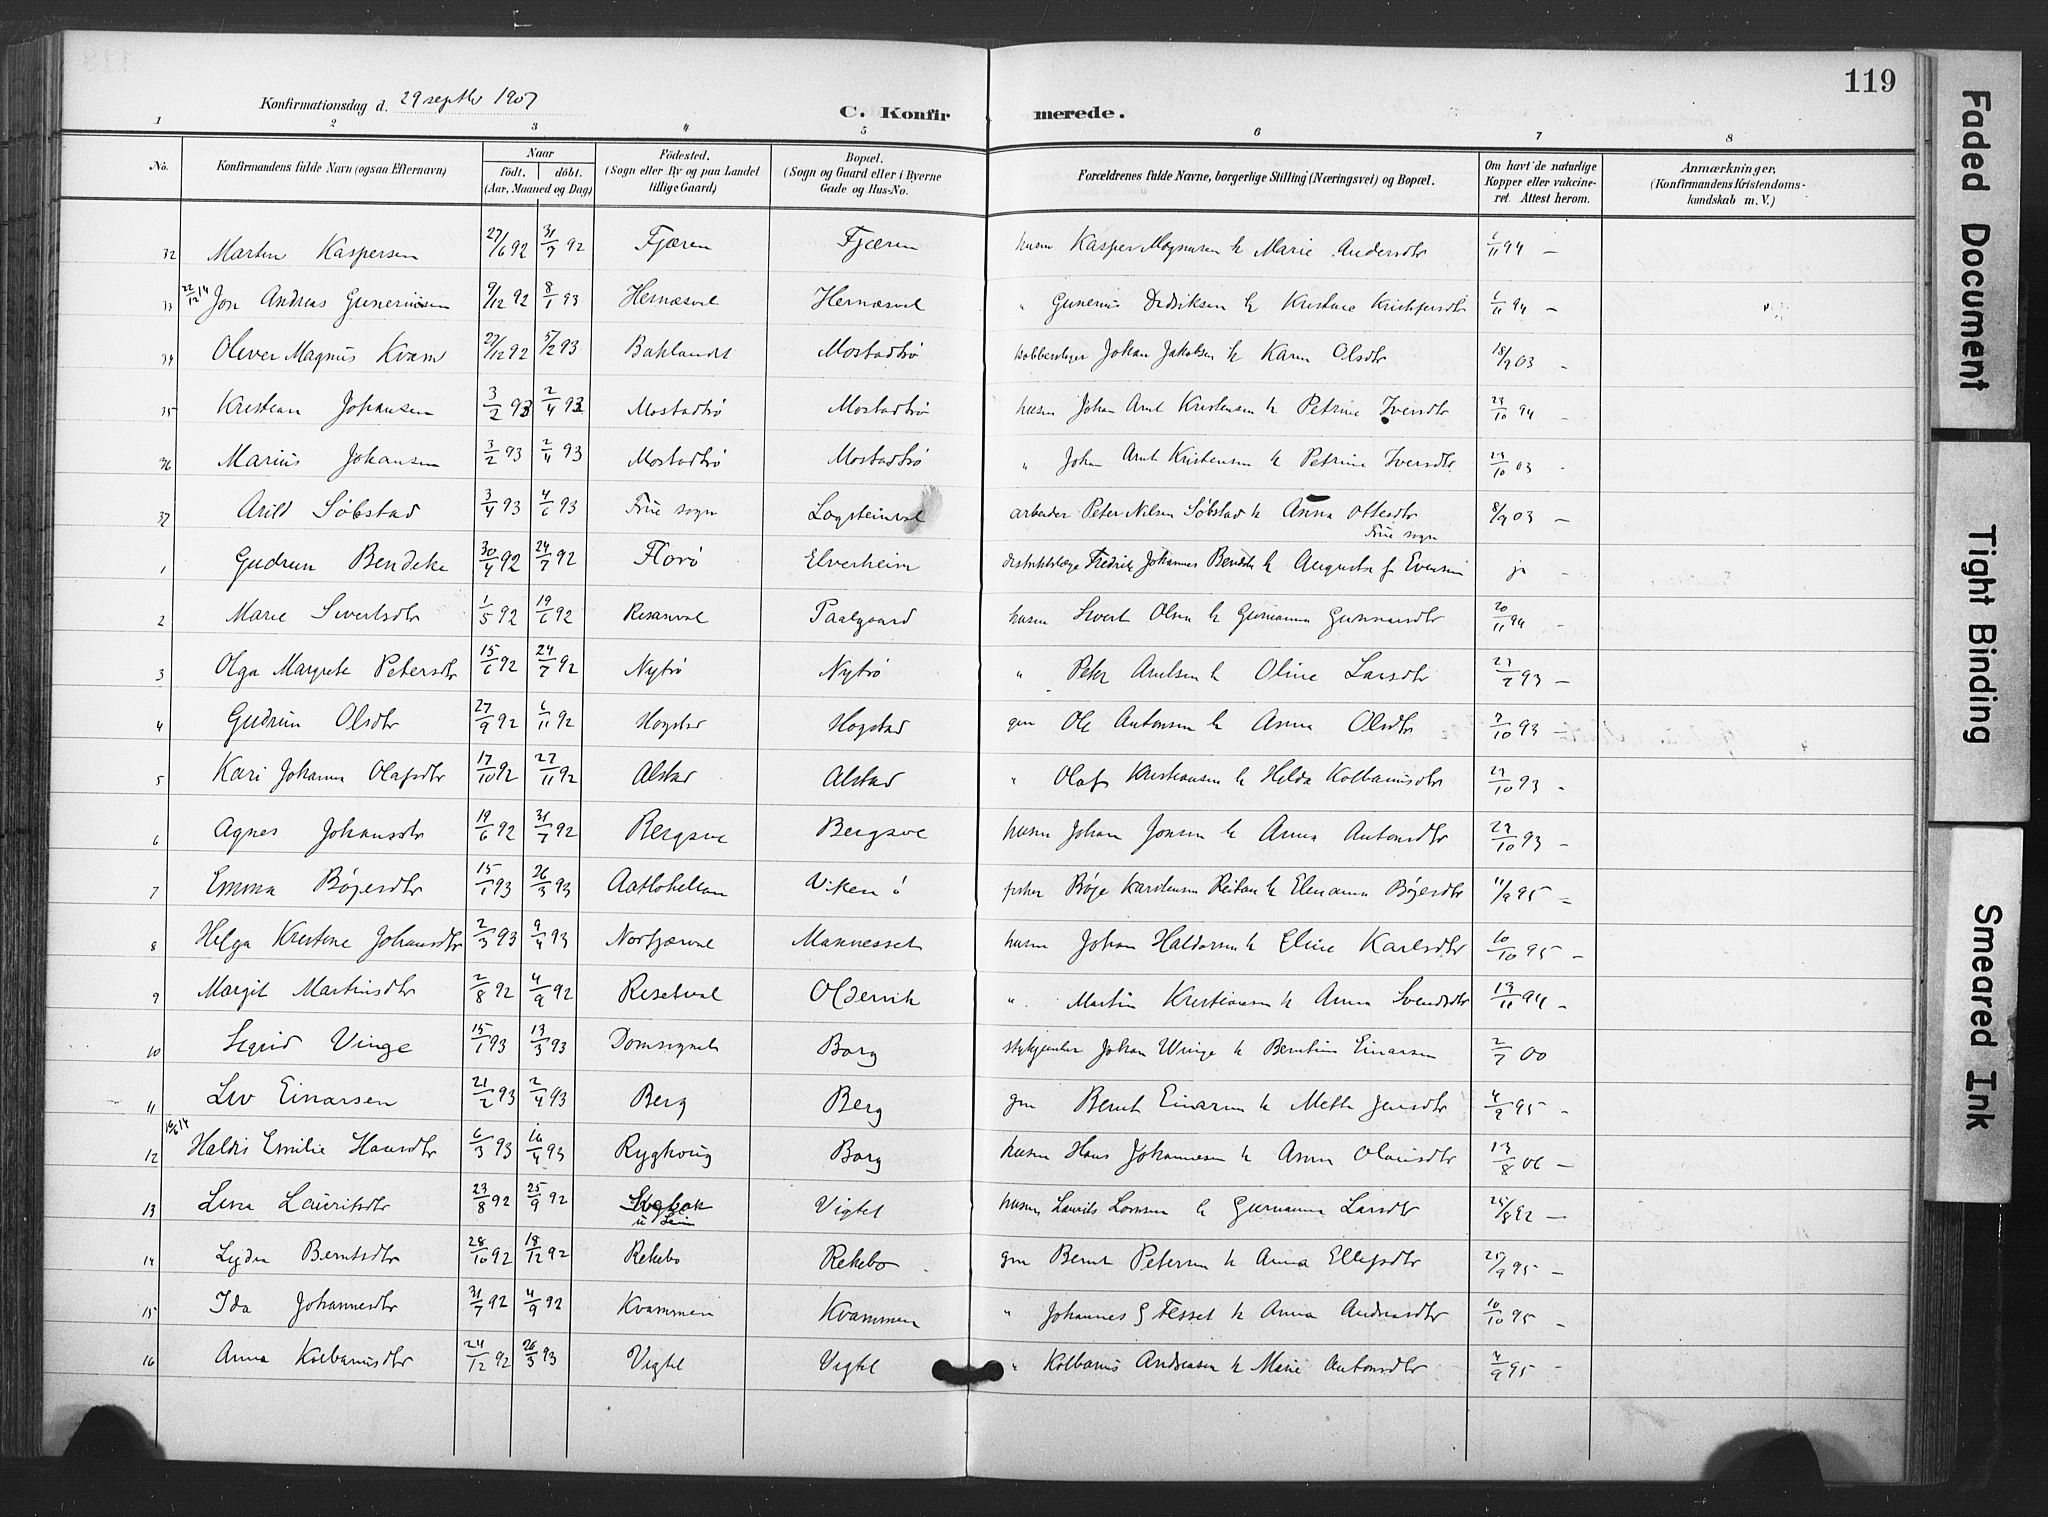 119
Konfirmationsdag d. 29 septbr 1907
C. Konfirmerede.
1 2 3 4 5 6 7 8
No. Konfirmandens fulde Navn (ogsaa Efternavn) Naar født. døbt. (Aar, Maaned og Dag) Fødested. (Sogn eller By og paa Landet tillige Gaard) Bopæl. (Sogn og Gaard eller i Byerne Gade og Hus-No. Forældrenes fulde Navne, borgerlige Stilling (Næringsvei) og Bopæl. Om havt de naturlige Kopper eller vakcineret. Attest herom. Anmærkninger. (Konfirmandens Kristendomskundskab m. V.)
32 Martin Kaspersen 27/6 92 31/7 92 Fjæren Fjæren husm Kasper Magnusen & Marie Andersdtr 6/11 94 –
33 22/12 14 Jon Andreas Guneriusen 9/12 92 8/1 93 Hernæsvl Hernæsvl " Gunerius Dedriksen & Kristine 6/11 94 –
34 Oliver Magnus Kvam 27/12 92 5/2 93 Baklandet Mostadtrø Johan Jakobsen & Karen Olsdtr 18/9 03 –
35 Kristian Johansen 3/2 93 2/4 93 Mostadtrø Mostadtrø husm Johan Arnt Kristensen & Petrine Iversdtr 23/10 94 –
36 Marius Johansen 3/2 93 2/4 93 Mostadtrø Mostadtrø " Johan Arnt Kristensen & Petrine Iversdtr 23/10 03
37 Arild Søbstad 3/4 93 4/6 93 Frue sogn arbeider Peter Nilsen Søbstad & Anna Ottesdtr 8/9 03 –
Frue sogn
1 Gudrun Bendeke 30/4 92 24/7 92 Florø Elverheim distriktslæge Fredrik Johannes Bendeke & Augusta f Evensen ja –
2 Marie Sivertsdtr 1/5 92 19/6 92 Risanvl Paalgaard husm Sivert Olsen & Gurianna Gunnarsdtr 20/11 94 –
3 Olga Margrete Petersdtr 15/6 92 24/7 92 Nytrø Nytrø " Peter Arntsen & Oline Larsdtr 27/7 93 –
4 Gudrun Olsdtr 27/9 92 6/11 92 Hogstad Hogstad gm Ole Antonsen & Anna Olsdtr 7/10 93 –
5 Kari Johanna Olafsdtr 17/10 92 27/11 92 Alstad Alstad " Olaf Kristiansen & Helda Kolbanusdtr 27/10 93 –
6 Agnes Johansdtr 19/6 92 31/7 92 Bergsve Bergsve husm Johan Jonsen & Anna Antonsdtr 27/10 93 –
7 Emma Bøjesdtr 15/1 93 26/3 93 Viken ø fisker Bøje Karstensen Reitan & Elenanna Bøjesdtr 11/9 95 –
8 Helga Kristine Johansdtr 2/3 93 9/4 93 Norfjærvl Mannesset husm Johan Haldorsen & Eline Karlsdtr 10/10 95 –
9 Margit Martinsdtr 2/8 92 4/9 92 Risetvl Oldervik " Martin Kristiansen & Anna Svendsdtr 19/11 94 –
10 Sigrid Vinge 15/1 93 13/3 93 Domsognet Borg Johan Winge & Berntine Einarsen 2/7 00
11 Liv Einarsen 21/2 93 2/4 93 Berg Berg gm Bernt Einarsen & Mette Jensdtr 4/9 95 –
12 18/6 14 Haldis Emilie Hansdtr 6/3 93 16/4 93 Ryghoug Borg husm Hans Johannesen & Anna Olausdtr 13/8 06 –
13 Lina Lauritsdtr 23/8 92 25/9 92 Vigtel husm Laurits Lornsen & Gurianna Larsdtr 25/8 92 –
14 Lydia Berntsdtr 28/10 92 18/12 92 Rekebo Rekebo gm Bernt Petersen & Anna Ellefsdtr 25/9 95 –
15 Ida Johannesdtr 31/7 92 4/9 92 Kvammen Kvammen " Johannes G Fesset & Anna Andreasdtr 10/10 95 –
16 Anna Kolbanusdtr 24/12 92 26/3 93 Vigtel Vigtel " Kolbanus Andreasen & Marie Antonsdtr 4/9 95 –
Faded Document
Tight Binding
Smeared Ink